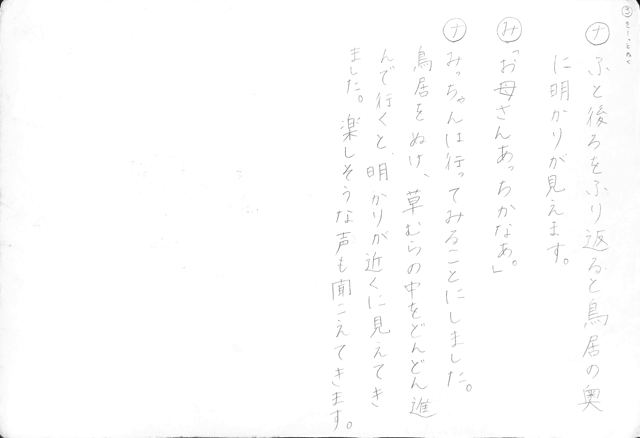 ③さーっとぬく
ナ ふと後ろをふり返ると鳥居の奥
に明かりが見えます。
み「お母さんあっちかなあ。」
ナ みっちゃんは行ってみることにしました。
鳥居をぬけ、草むらの中をどんどん進
んで行くと、明かりが近くに見えてき
ました。楽しそうな声も聞こえてきます。